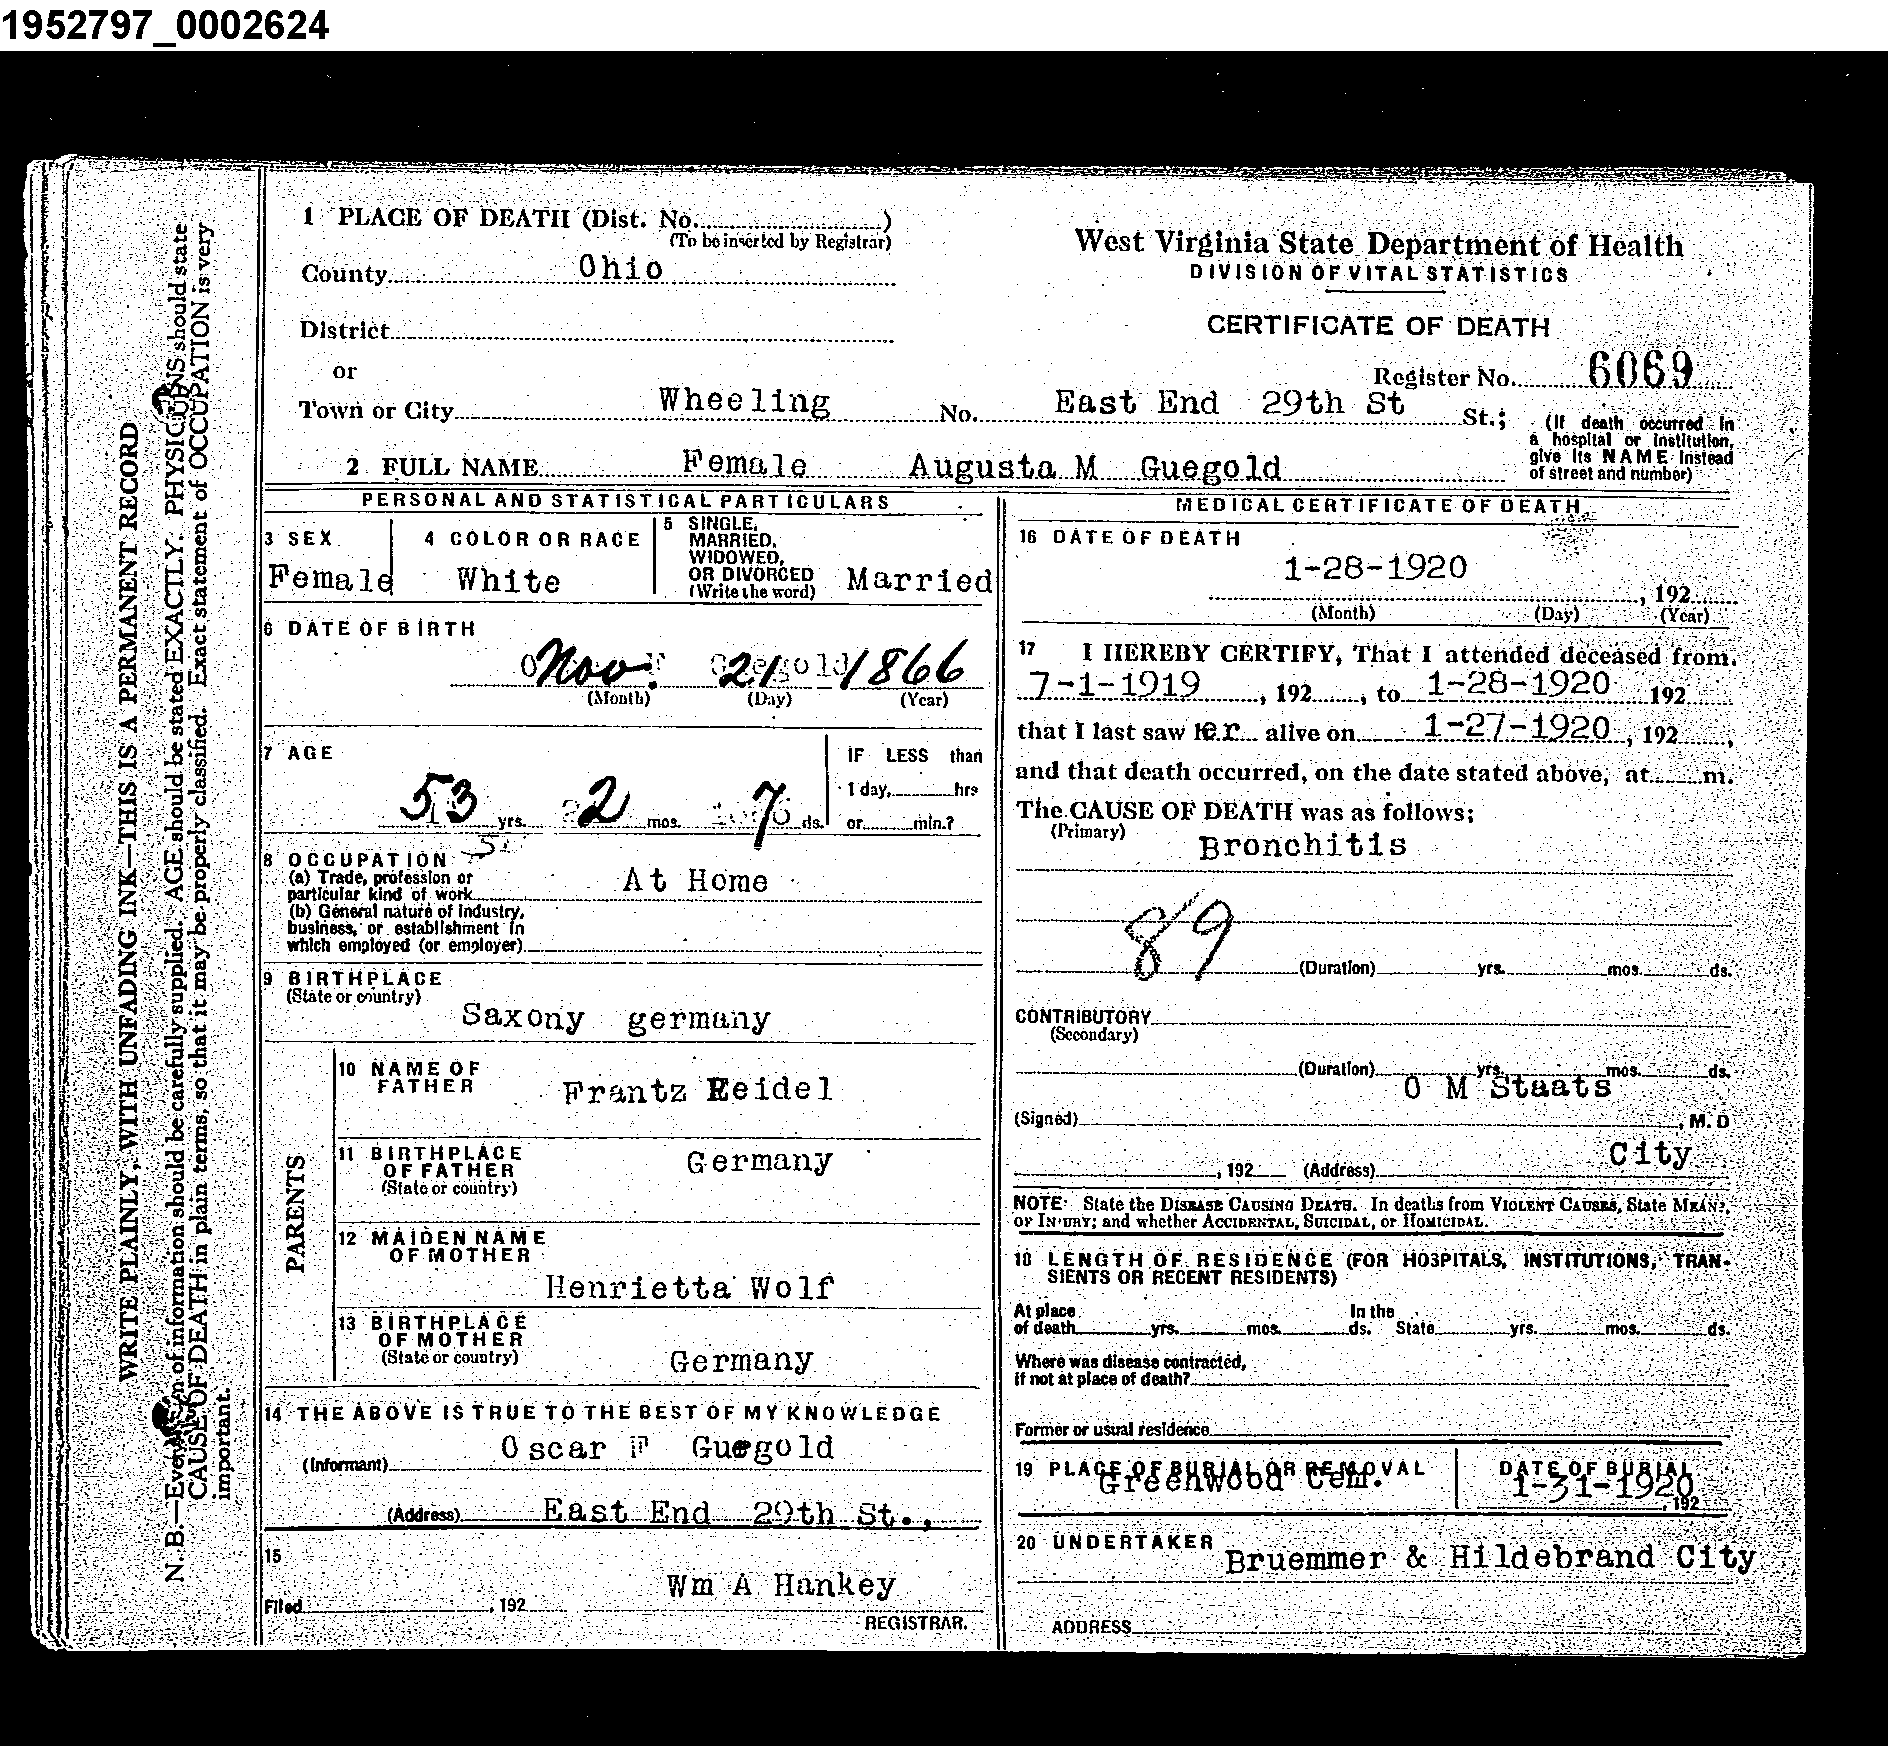 1952797_0002624
WRITE PLAINLY, WITH UNFADING INK—THIS IS A PERMANENT RECORD
N. B.—Every item of information should be carefully supplied. AGE should be stated EXACTLY. PHYSICIANS should state
CAUSE OF DEATH in plain terms, so that it may be properly classified. Exact statement of OCCUPATION is very
important.
1 PLACE OF DEATH (Dist. No.)
(To be inserted by Registrar)
County Ohio
District
or
Town or City Wheeling No. East End 29th St St.;
West Virginia State Department of Health
DIVISION OF VITAL STATISTICS
CERTIFICATE OF DEATH
Register No. 6069
(If death occurred in
a hospital or institution,
give its NAME instead
of street and number)
2 FULL NAME Female Augusta M Guegold
PERSONAL AND STATISTICAL PARTICULARS
3 SEX
Female
4 COLOR OR RACE
White
5 SINGLE,
MARRIED,
WIDOWED,
OR DIVORCED
(Write the word)
Married
6 DATE OF BIRTH
Nov. 21 1866
(Month) (Day) (Year)
7 AGE
53 yrs. 2 mos. 7 ds.
IF LESS than
1 day, hrs
or min.?
8 OCCUPATION
(a) Trade, profession or
particular kind of work At Home
(b) General nature of industry,
business, or establishment in
which employed (or employer)
9 BIRTHPLACE
(State or country)
Saxony germany
PARENTS
10 NAME OF
FATHER
Frantz Eeidel
11 BIRTHPLACE
OF FATHER
(State or country)
Germany
12 MAIDEN NAME
OF MOTHER
Henrietta Wolf
13 BIRTHPLACE
OF MOTHER
(State or country)
Germany
14 THE ABOVE IS TRUE TO THE BEST OF MY KNOWLEDGE
(Informant) Oscar F Guegold
(Address) East End 29th St.,
15
Filed , 192 Wm A Hankey
REGISTRAR.
MEDICAL CERTIFICATE OF DEATH
16 DATE OF DEATH
1-28-1920
, 192
(Month) (Day) (Year)
17 I HEREBY CERTIFY, That I attended deceased from
7-1-1919, 192, to 1-28-1920 192
that I last saw her alive on 1-27-1920, 192,
and that death occurred, on the date stated above, at m.
The CAUSE OF DEATH was as follows:
(Primary)
Bronchitis
89
(Duration) yrs. mos. ds.
CONTRIBUTORY
(Secondary)
(Duration) yrs. mos. ds.
(Signed) O M Staats, M. D
, 192 (Address) City
NOTE: State the DISEASE CAUSING DEATH. In deaths from VIOLENT CAUSES, State MEANS
OF INJURY; and whether ACCIDENTAL, SUICIDAL, or HOMICIDAL.
18 LENGTH OF RESIDENCE (FOR HOSPITALS, INSTITUTIONS, TRAN-
SIENTS OR RECENT RESIDENTS)
At place
of death yrs. mos. ds.
In the
State yrs. mos. ds.
Where was disease contracted,
if not at place of death?
Former or usual residence
19 PLACE OF BURIAL OR REMOVAL
Greenwood Cem.
DATE OF BURIAL
1-31-1920
, 192
20 UNDERTAKER
Bruemmer & Hildebrand City
ADDRESS